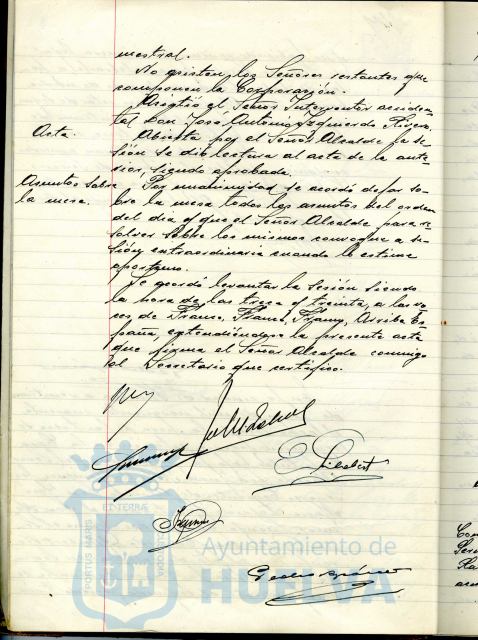 mestral.
No asisten los Señores restantes que
componen la Corporación.
Asistió el Señor Interventor acciden-
tal Don José Antonio Izquierdo Rivero.
Acta.
Abierta por el Señor Alcalde la se-
sión se dio lectura al acta de la ante-
rior, siendo aprobada.
Asuntos sobre
la mesa.
Por unanimidad se acordó dejar so-
bre la mesa todos los asuntos del orden
del día y que el Señor Alcalde para re-
solver sobre los mismos convoque a se-
sión extraordinaria cuando lo estime
oportuno.
Se acordó levantar la sesión siendo
la hora de las trece y treinta, a las vo-
ces de Franco, Franco, Franco, Arriba Es-
paña, extendiéndose la presente acta
que firma el Señor Alcalde conmigo
el Secretario que certifico.
E. Gilabert
PORTUS MARIS
ET TERRÆ
CUSTODIA
Ayuntamiento de
HUELVA